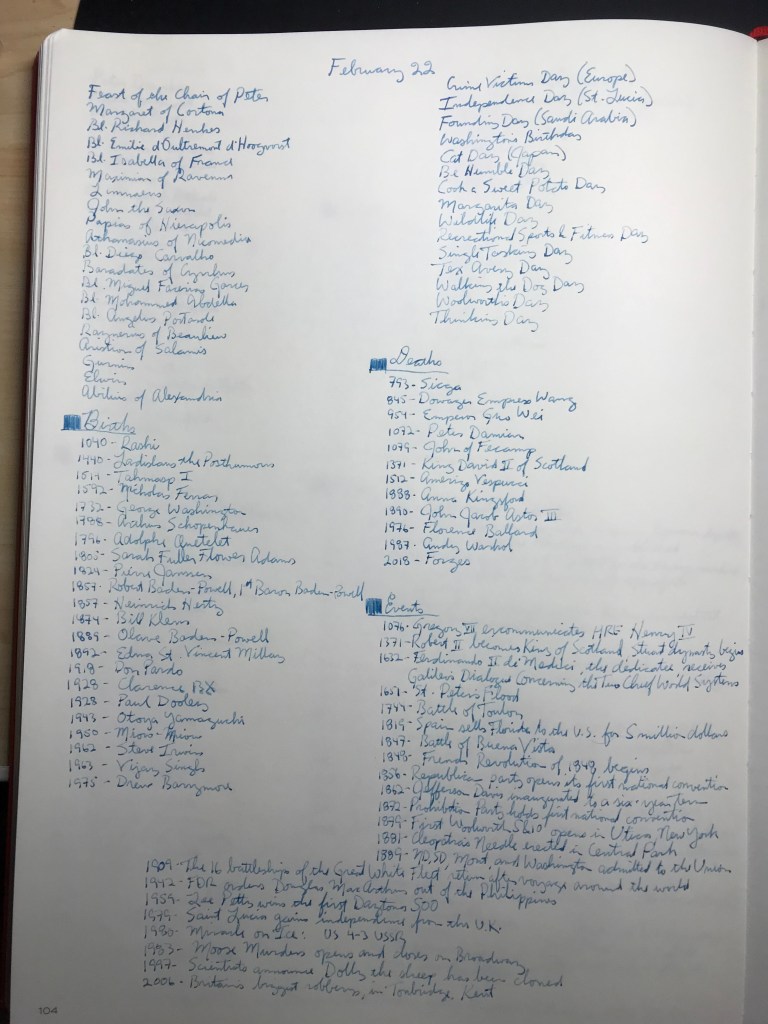 February 22
Feast of the Chair of Peter
Margaret of Cortona
Bl. Richard Henkes
Bl. Emilie d'Oultremont d'Hoogvorst
Bl. Isabella of France
Maximian of Ravenna
Limnaeus
John the Saxon
Papias of Hierapolis
Athanasius of Nicomedia
Bl. Diego Carvalho
Baradates of Cyrrhus
Bl. Miguel Facerías Garcés
Bl. Mohammed Abdalla
Bl. Angelus Portasole
Raynerius of Beaulieu
Aristion of Salamis
Elwin
Abilius of Alexandria
Crime Victims Day (Europe)
Independence Day (St. Lucia)
Founding Day (Saudi Arabia)
Washington's Birthday
Cat Day (Japan)
Be Humble Day
Cook a Sweet Potato Day
Margarita Day
Wildlife Day
Recreational Sports & Fitness Day
Single Tasking Day
Tex Avery Day
Walking the Dog Day
Woolworth's Day
Thinking Day
Births
1040 - Rashi
1440 - Ladislaus the Posthumous
1514 - Tahmasp I
1592 - Nicholas Ferrar
1732 - George Washington
1788 - Arthur Schopenhauer
1796 - Adolphe Quetelet
1805 - Sarah Fuller Flower Adams
1824 - Pierre Janssen
1857 - Robert Baden-Powell, 1st Baron Baden-Powell
1857 - Heinrich Hertz
1874 - Bill Klem
1889 - Olave Baden-Powell
1892 - Edna St. Vincent Millay
1918 - Don Pardo
1928 - Clarence, BX
1928 - Paul Dooley
1943 - Otoya Yamaguchi
1950 - Miou-Miou
1962 - Steve Irwin
1963 - Vijay Singh
1975 - Drew Barrymore
Deaths
793 - Sicga
845 - Dowager Empress Wang
954 - Emperor Guo Wei
1072 - Peter Damian
1079 - John of Fecamp
1371 - King David II of Scotland
1512 - Amerigo Vespucci
1888 - Anna Kingsford
1890 - John Jacob Astor III
1976 - Florence Ballard
1987 - Andy Warhol
2018 - Forges
Events
1076 - Gregory VII excommunicates HRE Henry IV
1371 - Robert II becomes King of Scotland, Stuart dynasty begins
1632 - Ferdinando II de' Medici, the dedicatee receives
Galileo's Dialogue Concerning the Two Chief World Systems
1651 - St. Peter's Flood
1744 - Battle of Toulon
1819 - Spain sells Florida to the U.S. for 5 million dollars
1847 - Battle of Buena Vista
1848 - French Revolution of 1848 begins
1856 - Republican party opens its first national convention
1862 - Jefferson Davis inaugurated to a six-year term
1872 - Prohibition Party holds first national convention
1879 - First Woolworth 5 & 10 opens in Utica, New York
1881 - Cleopatra's Needle erected in Central Park
1889 - ND, SD, Mont, and Washington admitted to the Union
1909 - The 16 battleships of the Great White Fleet return after voyage around the world
1942 - FDR orders Douglas MacArthur out of the Philippines
1959 - Lee Petty wins the first Daytona 500
1979 - Saint Lucia gains independence from the U.K.
1980 - Miracle on Ice: US 4-3 USSR
1983 - Moose Murders opens and closes on Broadway
1997 - Scientists announce Dolly the sheep has been cloned
2006 - Britain's biggest robbery, in Tonbridge, Kent
104